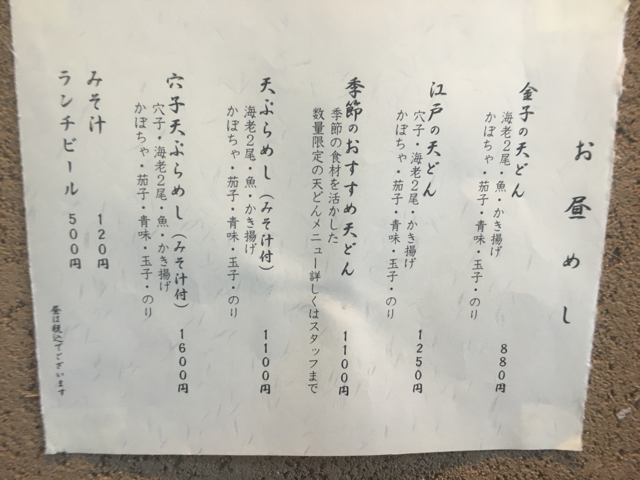 お昼めし
金子の天どん
海老2尾・魚・かき揚げ
かぼちゃ・茄子・青味・玉子・のり
880円
江戸の天どん
穴子・海老2尾・かき揚げ
かぼちゃ・茄子・青味・玉子・のり
1250円
季節のおすすめ天どん
季節の食材を活かした
数量限定の天どんメニュー詳しくはスタッフまで
1100円
天ぷらめし（みそ汁付）
海老2尾・魚・かき揚げ
かぼちゃ・茄子・青味・玉子・のり
1100円
穴子天ぷらめし（みそ汁付）
穴子・海老2尾・魚・かき揚げ
かぼちゃ・茄子・青味・玉子・のり
1600円
みそ汁 120円
ランチビール 500円
昼は税込でございます